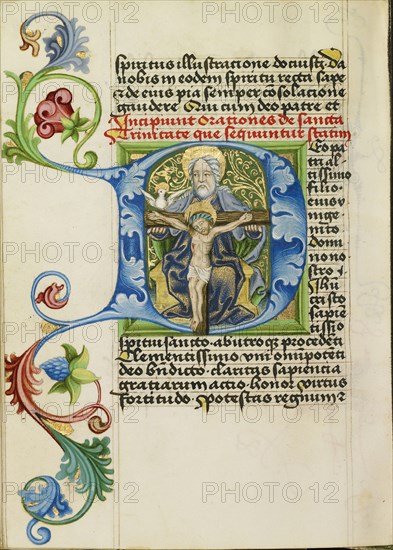 spiritus illustratione docuisti da
nobis in eodem spiritu recta sape
de cuius pia semper cosolacione
gaudere Qui cum deo patre et
Incipiunt Orationes de sancta
Trinitate que sequuntur statim
DEo pa
tri al
tissimo
filio
eius v
nige
nito
domi
no no
stro
Ihu
cristo
sapie
tissio
spiritu sancto ab utroque procedeti
Clementissimo vni omipoteti
deo bndicto claritas sapiencia
gratiarum actio honor virtus
fortitudo potestas regnum
PHOTO 12